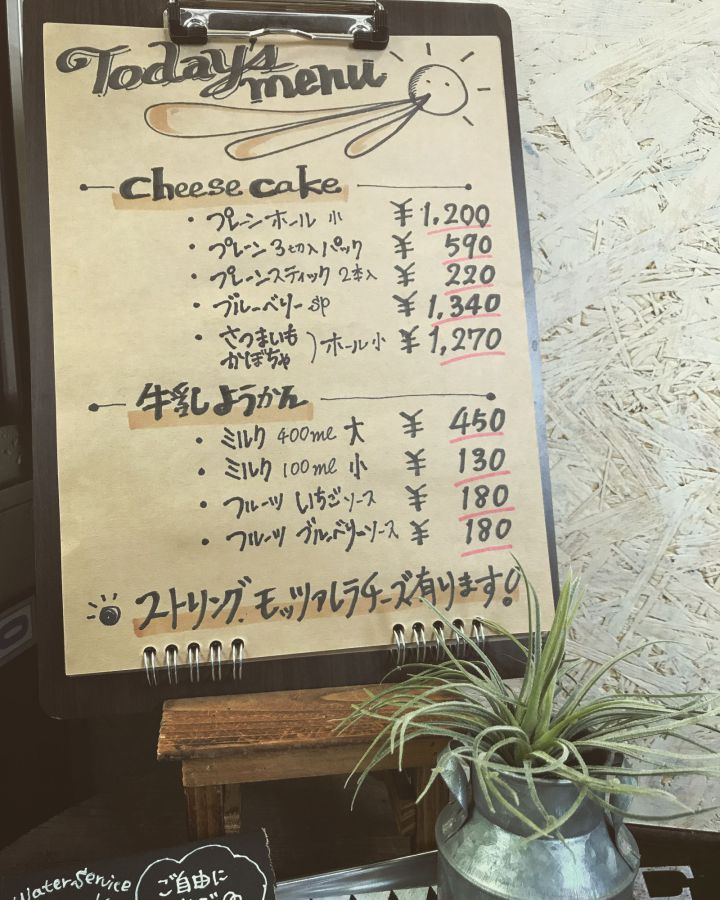 Today's menu
cheese cake
・プレーンホール 小 ¥1,200
・プレーン3切入パック ¥590
・プレーンスティック 2本入 ¥220
・ブルーベリー sp ¥1,340
・さつまいも
かぼちゃ ）ホール小 ¥1,270
牛乳ようかん
・ミルク 400ml 大 ¥450
・ミルク 100ml 小 ¥130
・フルーツ いちごソース ¥180
・フルーツ ブルーベリーソース ¥180
ストリング.モッツァレラチーズ有ります!
Water Service
ご自由に